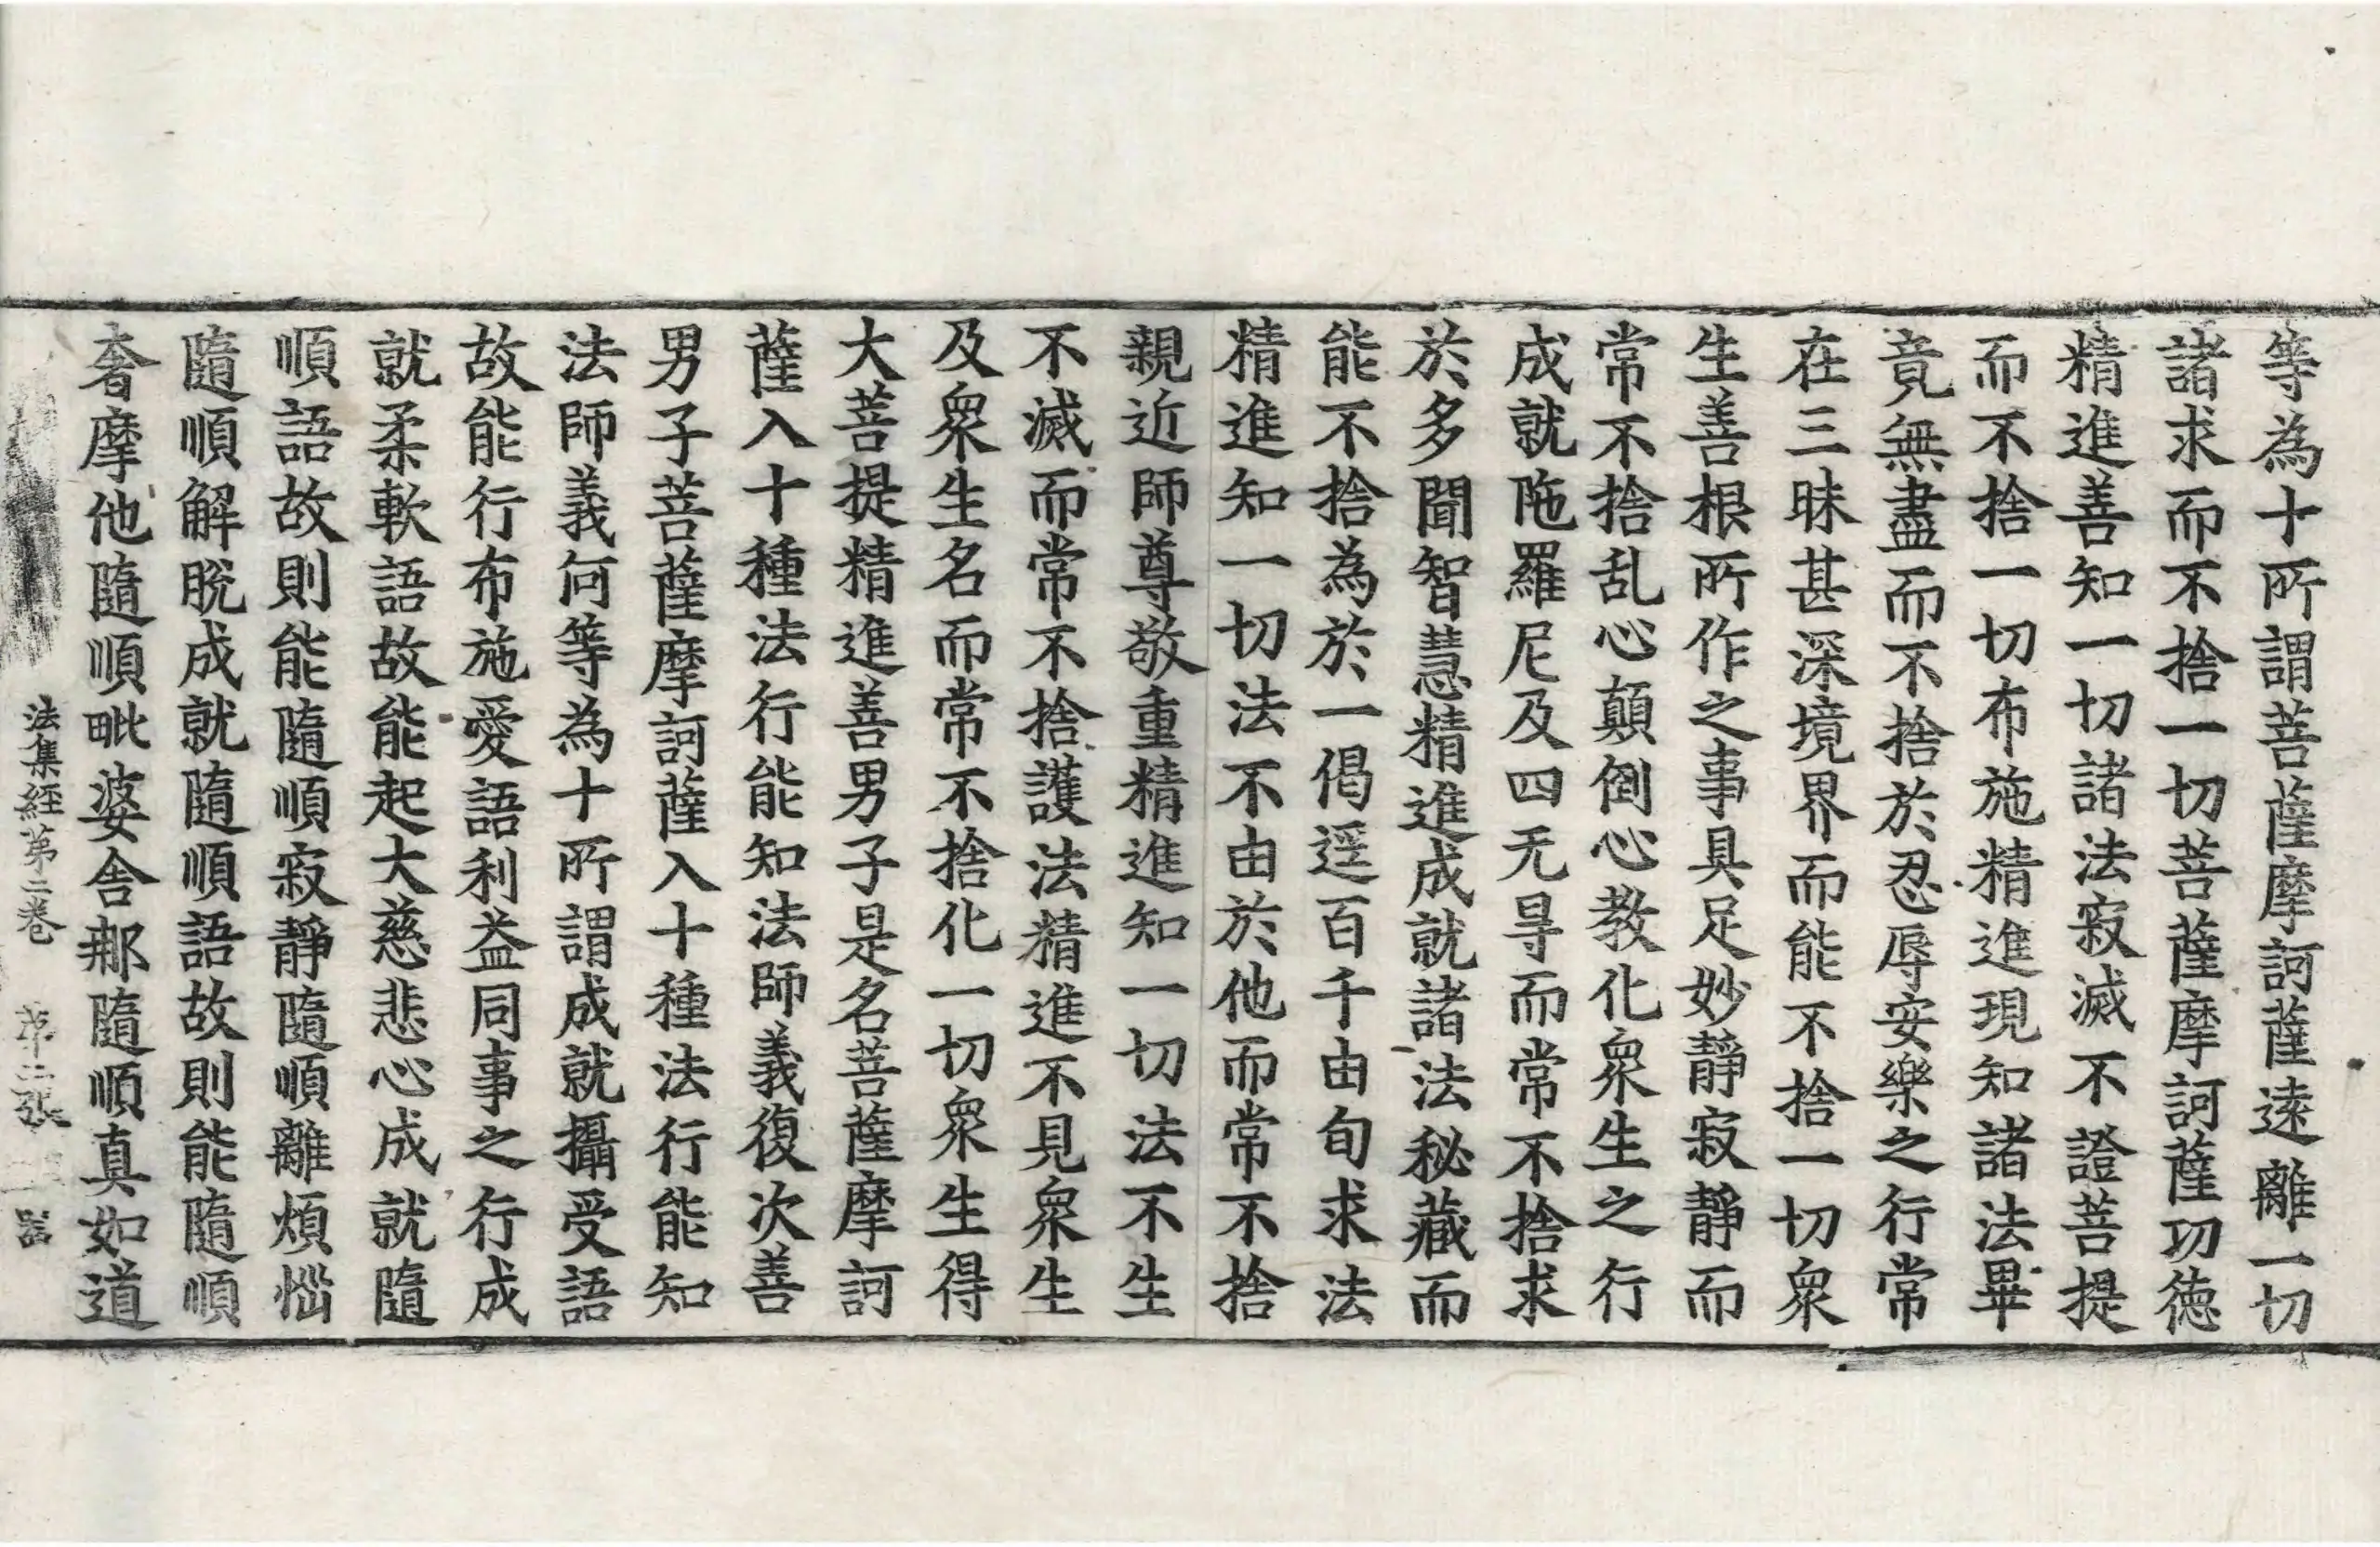 等為十所謂菩薩摩訶薩遠離一切
諸求而不捨一切菩薩摩訶薩功徳
精進善知一切諸法寂滅不證菩提
而不捨一切布施精進現知諸法畢
竟無盡而不捨於忍辱安樂之行常
在三昧甚深境界而能不捨一切衆
生善根所作之事具足妙靜寂靜而
常不捨乱心顛倒心教化衆生之行
成就陁羅尼及四无㝵而常不捨求
於多聞智慧精進成就諸法秘藏而
能不捨為於一偈逕百千由旬求法
精進知一切法不由於他而常不捨
親近師尊敬重精進知一切法不生
不滅而常不捨護法精進不見衆生
及衆生名而常不捨化一切衆生得
大菩提精進善男子是名菩薩摩訶
薩入十種法行能知法師義復次善
男子菩薩摩訶薩入十種法行能知
法師義何等為十所謂成就攝受語
故能行布施愛語利益同事之行成
就柔軟語故能起大慈悲心成就隨
順語故則能隨順寂靜隨順離煩惱
隨順解脫成就隨順語故則能隨順
奢摩他隨順毗婆舍那隨順真如道
法集經第二卷 第二張 器